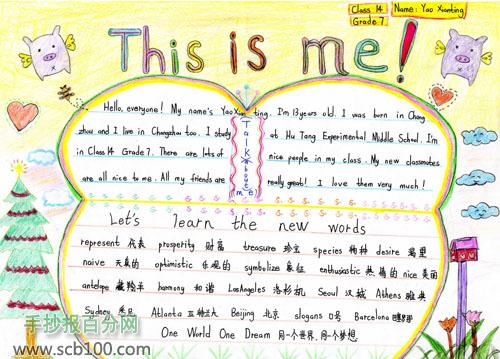 Class 14 Name: Yao Xianting
Grade 7
This is me!
Hello, everyone! My name's Yao Xian ting. I'm 13 years old. I was born in Chang
zhou and I live in Changzhou too. I study at Hu Tang Experimental Middle School. I'm
in Class 14 Grade 7. There are lots of nice people in my class. My new classmates
are all nice to me. All my friends are really great! I love them very much!
Talk about me
Let's learn the new words
represent 代表 prosperity 财富 treasure 珍宝 species 物种 desire 渴望
naive 天真的 optimistic 乐观的 symbolize 象征 enthusiastic 热情的 nice 美丽
antelope 藏羚羊 harmony 和谐 LosAngeles 洛杉机 Seoul 汉城 Athens 雅典
Sydney 悉尼 Atlanta 亚特兰大 Beijing 北京 slogans 口号 Barcelona
One World One Dream 同一个世界,同一个梦想
手抄报百分网
www.scb100.com